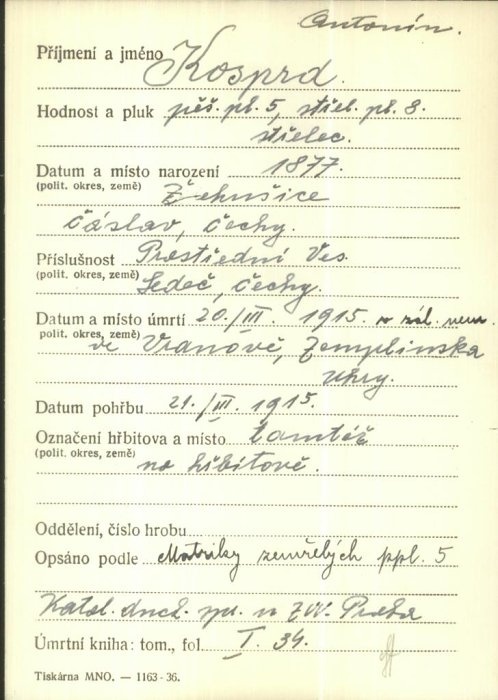 Antonín.
Příjmení a jméno Kosprd.
Hodnost a pluk pěš. pl. 5, střel. pl. 8.
střelec.
Datum a místo narození 1877.
(polit. okres, země) Žehušice
Čáslav, Čechy.
Příslušnost Prostřední Ves.
(polit. okres, země) Ledeč, Čechy.
Datum a místo úmrtí 20./III. 1915. v zál. nem.
(polit. okres, země) ve Vranově, Zemplínska
Uhry.
Datum pohřbu 21./III. 1915.
Označení hřbitova a místo tamtéž
(polit. okres, země) na hřbitově.
Oddělení, číslo hrobu
Opsáno podle Matriky zemřelých ppl. 5
Katol. duch. spr. u ZVV. Praha
Úmrtní kniha: tom., fol. I. 34.
Tiskárna MNO. — 1163-36.